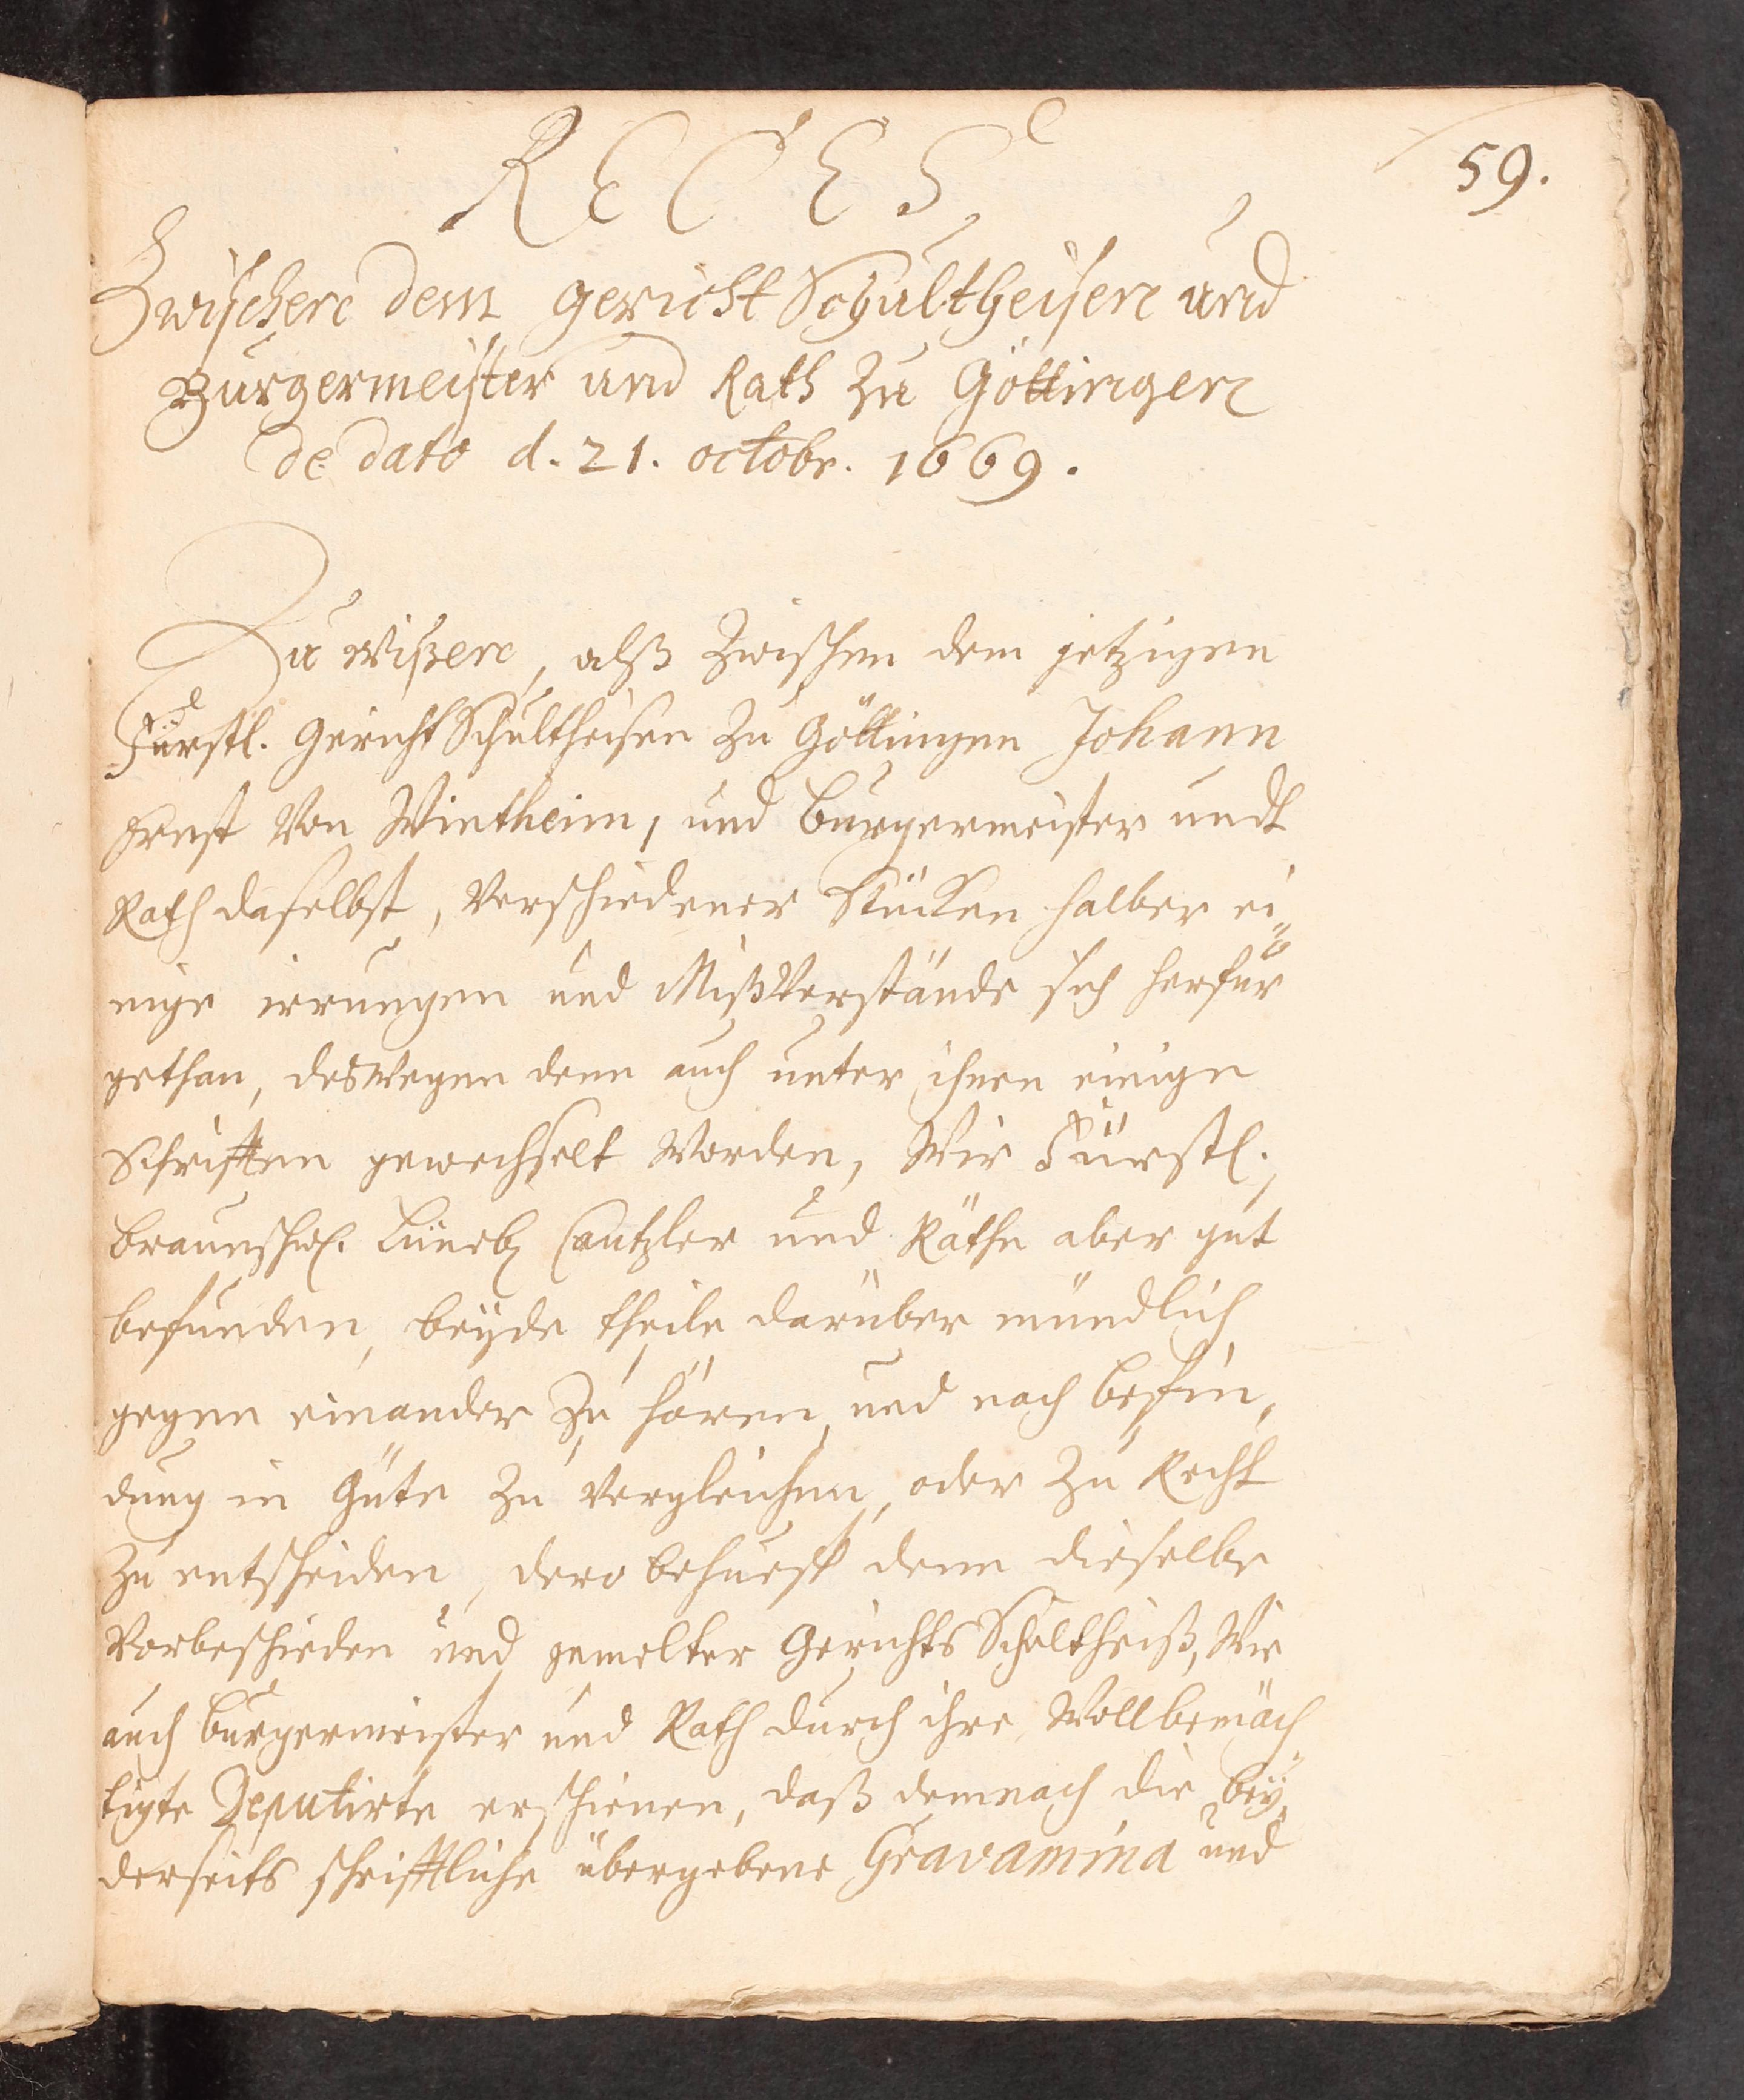 59.
RECES
Zwischen dem gericht Schultheisen und
Burgermeister und Rath Zu Göttingen
de dato d. 21. octobr. 1669.
Zu wißen, alß Zwischen dem jetzigen
Fürstl. Gericht Schultheisen Zu Göttingen Johann
Ernst Von Wintheim, und Burgermeister undt
Rath daselbst, Verschiedener Stücken halber ei„
nige irrungen und MißVerstände sich herfür
gethan, desWegen denn auch unter ihnen einige
Schrifften gewechselt Worden, Wir Fürstl.
Braunschw. Lüneb. Cantzler und Räthe aber gut
befunden, beÿde theile darüber mündlich
gegen einander Zu hören, und nach befin„
dung in Güte Zu Vergleichen, oder Zu Recht
Zu entscheiden, dero behuest denn dieselbe
Vorbeschieden und gemelter Gerichts Scholtheiß, Wie
auch Burgermeister und Rath durch ihre Vollbemäch
tigte Deputirte erschienen, daß demnach die beÿ„
derseits schrifftliche übergebene Gravamina und